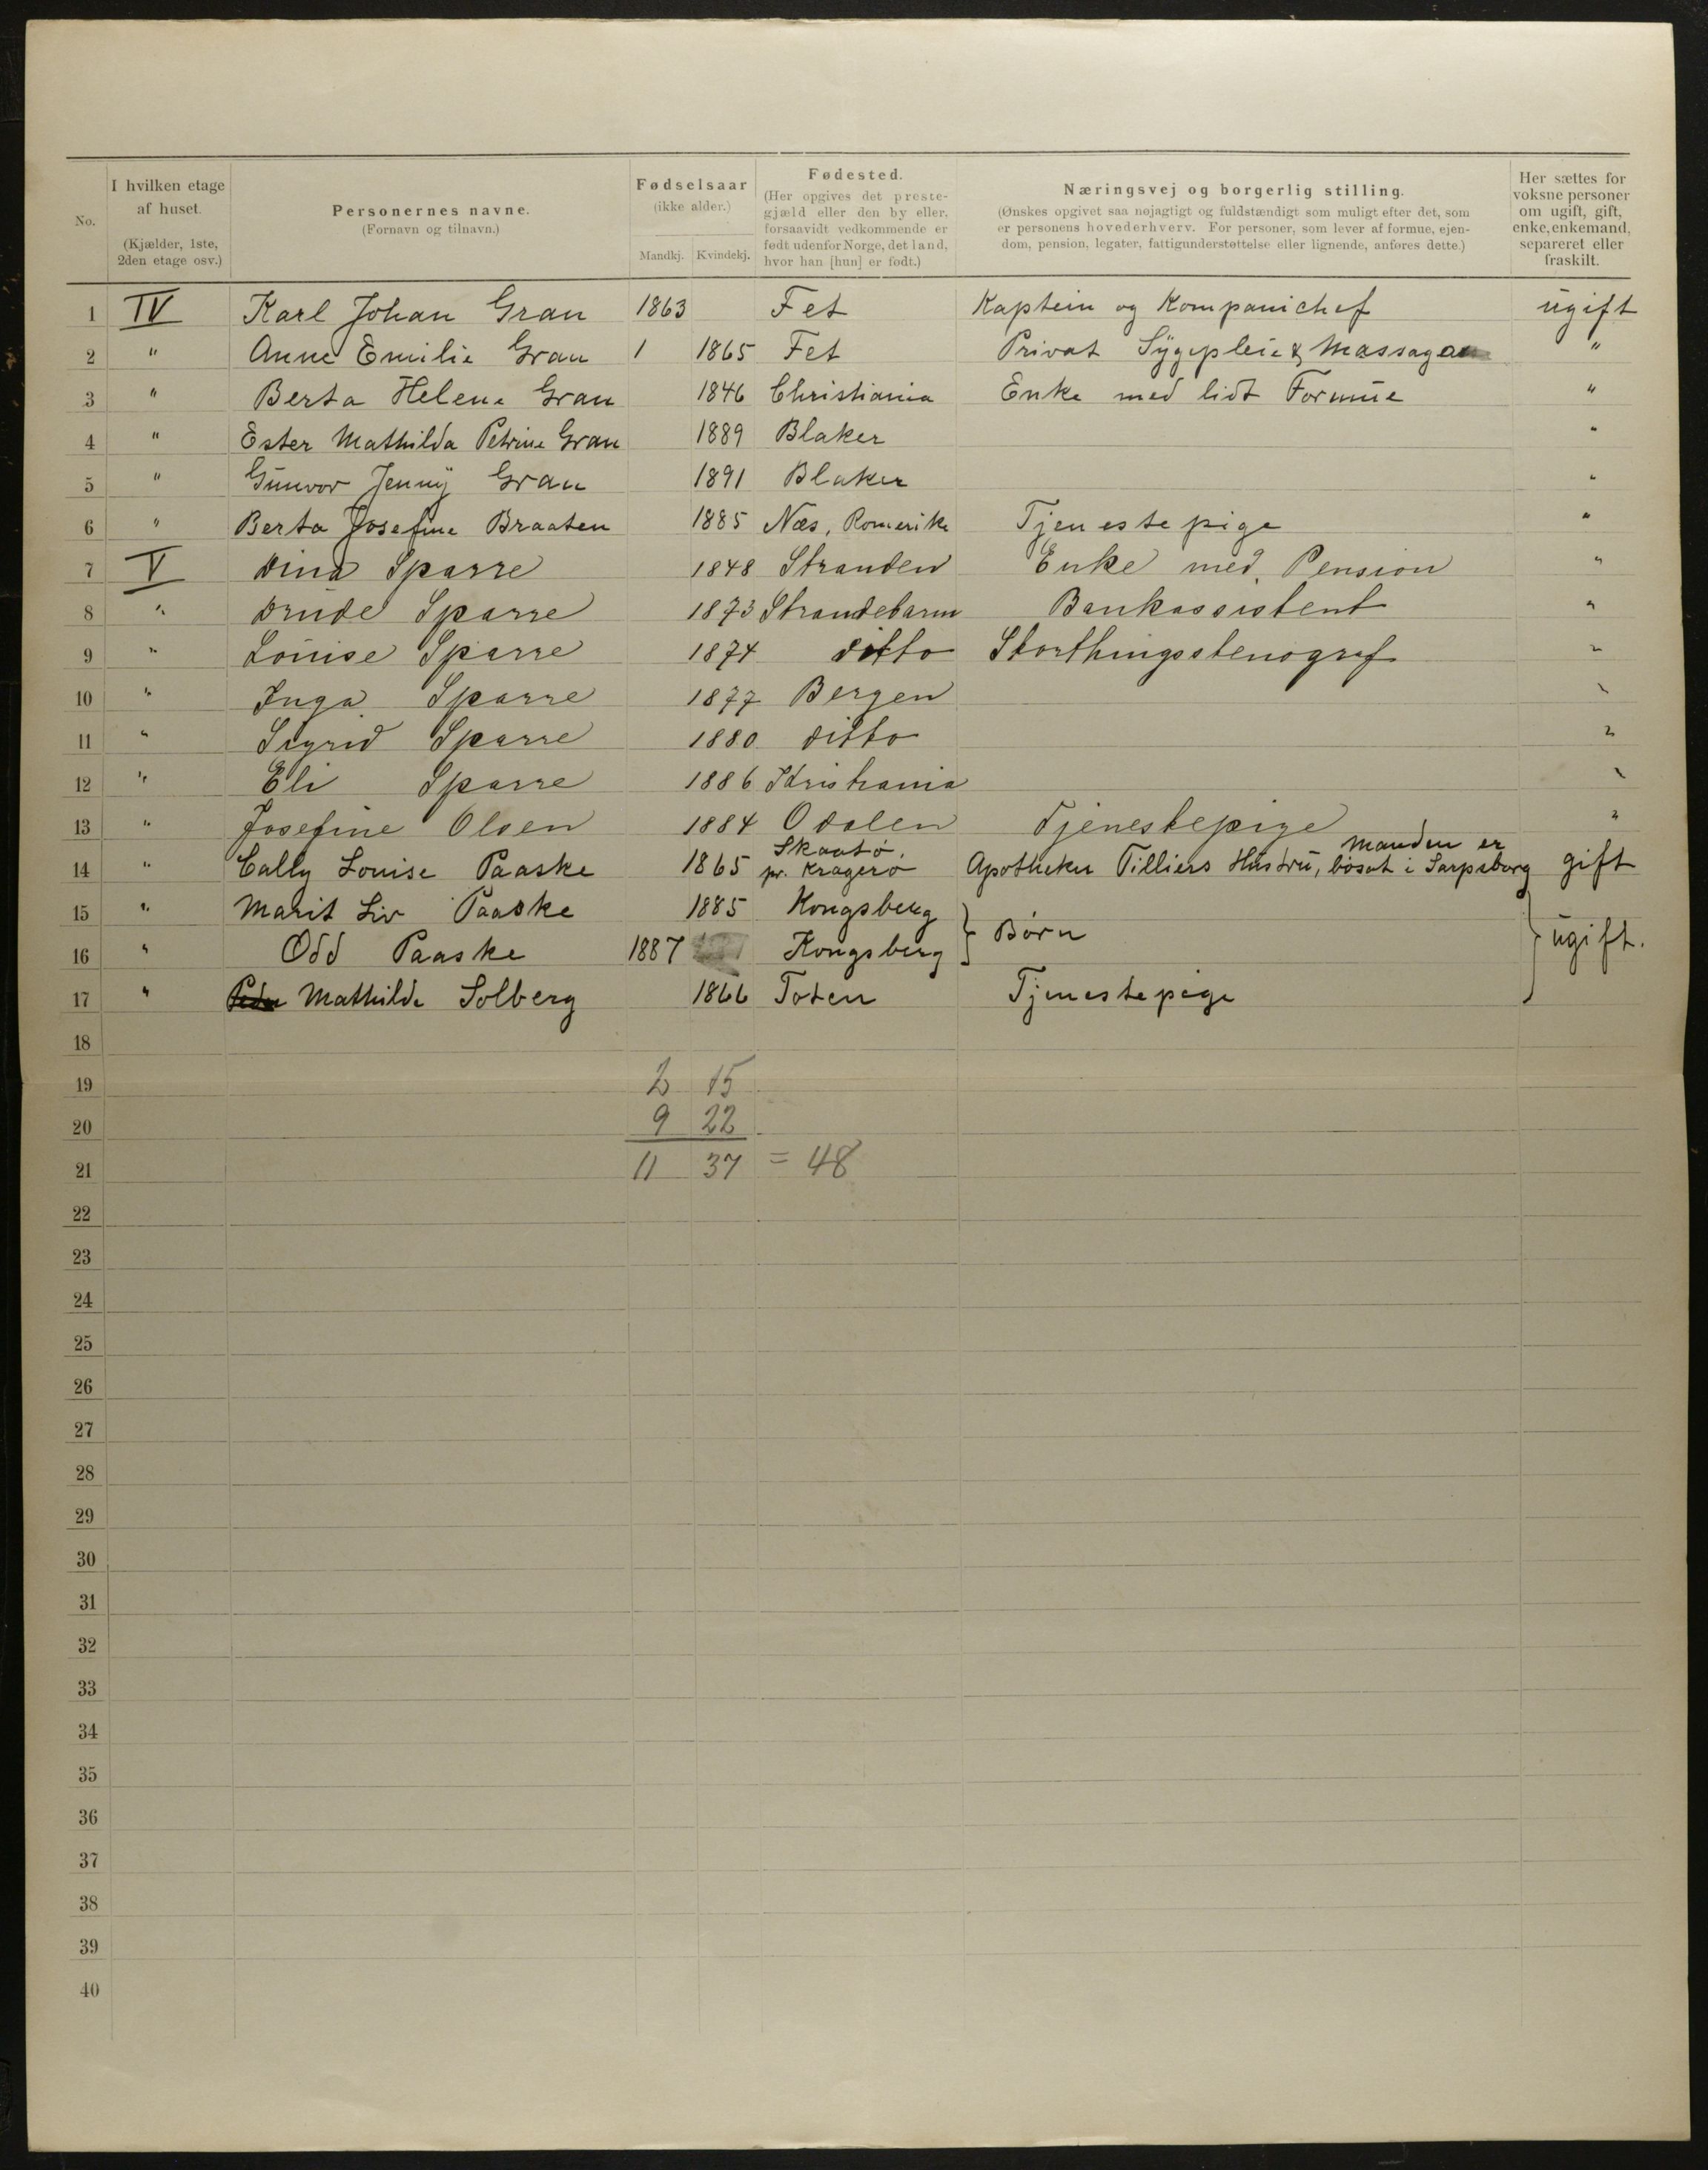 No.
I hvilken etage af huset. (Kjælder, 1ste, 2den etage osv.)
Personernes navne. (Fornavn og tilnavn.)
Fødselsaar (ikke alder.) Mandkj. Kvindekj.
Fødested. (Her opgives det prestegjæld eller den by eller, forsaavidt vedkommende er født udenfor Norge, det land, hvor han [hun] er født.)
Næringsvej og borgerlig stilling. (Ønskes opgivet saa nøjagtigt og fuldstændigt som muligt efter det, som er personens hovederhverv. For personer, som lever af formue, ejendom, pension, legater, fattigunderstøttelse eller lignende, anføres dette.)
Her sættes for voksne personer om ugift, gift, enke, enkemand, separeret eller fraskilt.
1 IV Karl Johan Gran 1863 Fet Kaptein og Kompanichef ugift
2 " Anne Emilie Gran 1 1865 Fet Privat Sygepleie & Massage "
3 " Berta Helene Gran 1846 Christiania Enke med lidt Formue "
4 " Ester Mathilda Petrine Gran 1889 Blaker "
5 " Gunvor Jenny Gran 1891 Blaker "
6 " Berta Josefine Braaten 1885 Næs, Romerike Tjenestepige "
7 V Dina Sparre 1848 Stranden Enke med Pension "
8 " Drude Sparre 1873 Strandebarm Bankassistent "
9 " Louise Sparre 1874 ditto Storthingsstenograf "
10 " Inga Sparre 1877 Bergen "
11 " Sigrid Sparre 1880 ditto "
12 " Eli Sparre 1886 Kristiania "
13 " Josefine Olsen 1884 Odalen Tjenestepige "
14 " Cally Louise Paaske 1865 Skaatø pr. Kragerø Apotheker Tilliers Hustru, manden er bosat i Sarpsborg gift
15 " Marit Liv Paaske 1885 Kongsberg } Børn } ugift.
16 " Odd Paaske 1887 Kongsberg
17 " Mathilde Solberg 1866 Toten Tjenestepige
18
19 2 15
20 9 22
21 11 37 = 48
22
23
24
25
26
27
28
29
30
31
32
33
34
35
36
37
38
39
40